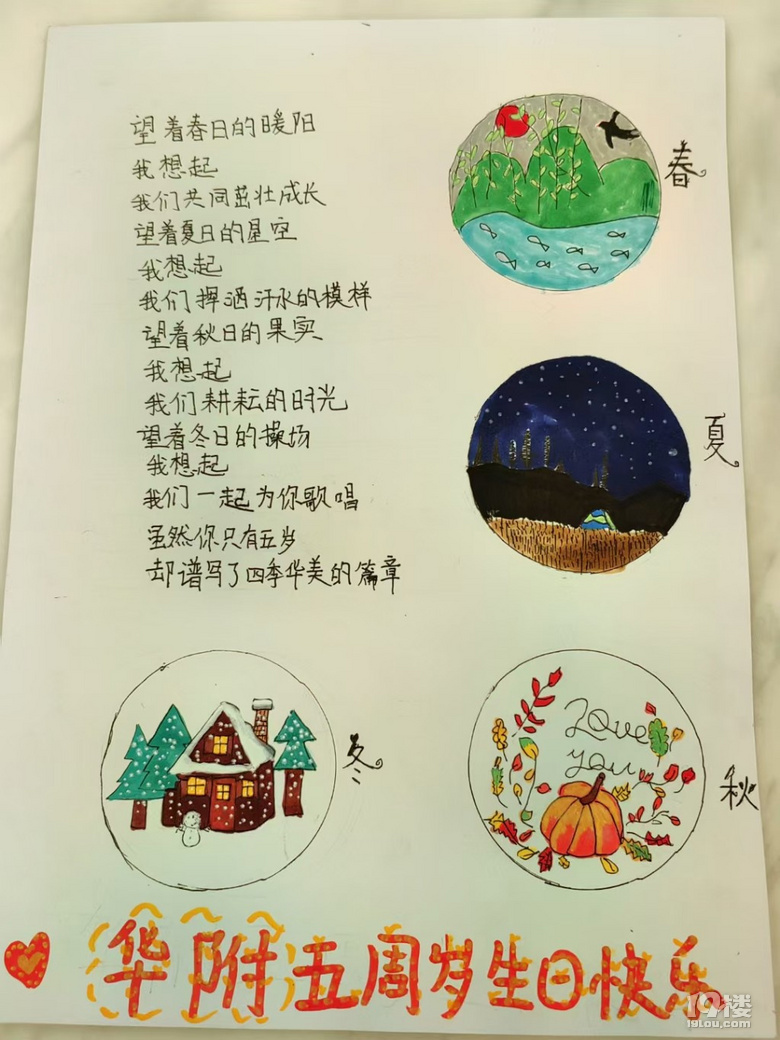 望着春日的暖阳
我想起
我们共同茁壮成长
望着夏日的星空
我想起
我们挥洒汗水的模样
望着秋日的果实
我想起
我们耕耘的时光
望着冬日的操场
我想起
我们一起为你歌唱
虽然你只有五岁
却谱写了四季华美的篇章
春
夏
冬
Love
you
秋
华附五周岁生日快乐
19楼
19lou.com